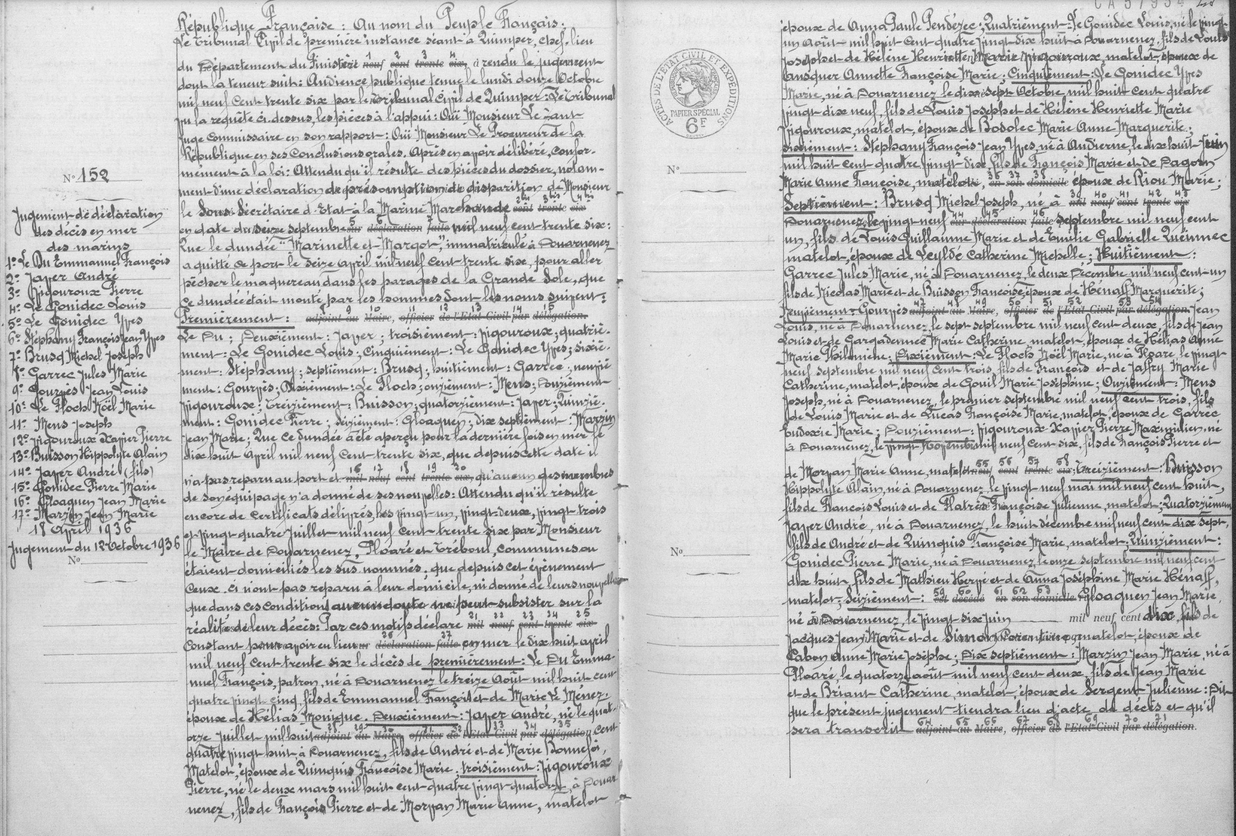 N° 152
Jugement de déclaration
des décès en mer
des marins
1° Le Du Emmanuel François
2° Japer André
3° Vigouroux Pierre
4° Le Gonidec Louis
5° Le Gonidec Yves
6° Stéphany François Jean Yves
7° Brusq Michel Joseph
8° Garrec Jules Marie
9° Gourvès Jean Louis
10° Le Floch Noël Marie
11° Mens Joseph
12° Vigouroux Xavier Pierre
13° Buisson Hippolyte Alain
14° Japer André (fils)
15° Gonidec Pierre Marie
16° Gloaguen Jean Marie
17° Marzin Jean Marie
18 Avril 1936
Jugement du 12 Octobre 1936
N°
République Française : Au nom du Peuple Français :
Le Tribunal Civil de première instance séant à Quimper, chef-lieu
du Département du Finistère neuf cent trente six, a rendu le jugement
dont la teneur suit : Audience publique tenue le lundi douze Octobre
mil neuf cent trente six par le Tribunal Civil de Quimper. Le Tribunal
Vu la requête ci-dessus, les pièces à l'appui : Ouï Monsieur Le
Juge Commissaire en son rapport : Ouï Monsieur Le Procureur de la
République en ses conclusions orales. Après en avoir délibéré, confor-
mément à la loi : Attendu qu'il résulte des pièces du dossier, notam-
ment d'une déclaration de présomption de disparition de Monsieur
le Sous-Secrétaire d'Etat à la Marine Marchande cent trente six
en date du seize septembre déclaration faite mil neuf cent trente six :
Que le dundée "Marinette et Margot", immatriculé à Douarnenez
a quitté ce port le seize avril mil neuf cent trente six, pour aller
pêcher le maquereau dans les parages de la Grande Sole, que
ce dundée était monté par les hommes dont les noms suivent :
Premièrement : adjoint au Maire, officier de l'Etat-Civil par délégation.
Le Du ; Deuxièment : Japer ; troisièment : Vigouroux ; quatriè-
ment : Le Gonidec Louis ; Cinquièment : Le Gonidec Yves ; sixiè-
ment : Stéphany ; septièment : Brusq ; huitièment : Garrec ; neuviè-
ment : Gourvès ; Dixièment : Le Floch ; onzièment : Mens ; Douzièment
Vigouroux ; treizièment : Buisson ; quatorzièment : Japer ; Quinziè-
ment : Gonidec Pierre ; Seizièment : Gloaguen ; dix septièment : Marzin
Jean Marie ; Que ce dundée a été aperçu pour la dernière fois en mer le
dix huit avril mil neuf cent trente six, que depuis cette date il
n'a pas reparu au port et mil neuf cent trente six, qu'aucun des membres
de son équipage n'a donné de ses nouvelles : Attendu qu'il résulte
encore de certificats délivrés, les vingt-un, vingt-deux, vingt trois
et vingt quatre Juillet mil neuf cent trente six par Monsieur
le Maire de Douarnenez, Ploaré et Tréboul, communes où
étaient domiciliés les sus-nommés, que depuis cet événement
ceux-ci n'ont pas reparu à leur domicile, ni donné de leurs nouvelles
que dans ces conditions aucun doute ne peut subsister sur la
réalité de leur décès : Par ces motifs déclare mil neuf cent trente six
constant pour avoir eu lieu déclaration faite en mer le dix huit avril
mil neuf cent trente six le décès de premièrement : Le Du Emma-
nuel François, patron, né à Douarnenez le treize Août mil huit cent
quatre vingt cinq, fils de Emmanuel François et de Marie L. Ménez,
époux de Hélias Monique. Deuxièment : Japer André, né le quat-
orze Juillet mil huit adjoint au Maire, officier de l'Etat-Civil par délégation cent
quatre vingt huit à Douarnenez, fils de André et de Marie Bonnefoi,
Matelot, époux de Quinquis Françoise Marie, troisièment : Vigouroux
Pierre, né le deux mars mil huit cent quatre vingt quatorze, à Douar-
nenez, fils de François Pierre et de Morvan Marie Anne, matelot
ACTES DE L'ETAT CIVIL ET EXPEDITIONS
PAPIER SPECIAL
6F
N°
N°
époux de Anna Paule Pendézec ; Quatrièment : Le Gonidec Louis, né le vingt
un Août mil huit cent quatre vingt dix huit à Douarnenez, fils de Louis
Joseph et de Hélène Henriette Marie Vigouroux, matelot, époux de
Annette Françoise Marie ; Cinquièment : Le Gonidec Yves
Marie, né à Douarnenez le dix sept Octobre, mil huit cent quatre
vingt dix neuf, fils de Louis Joseph et de Hélène Henriette Marie
Vigouroux, matelot, époux de Bodolec Marie Anne Marguerite ;
Sixièment : Stéphany François Jean Yves, né à Audierne, le dix huit Juin
mil huit cent quatre vingt dix, fils de François Marie et de Dagorn
Marie Anne Françoise, matelot, en son domicile époux de Riou Marie ;
Septièment : Brusq Michel Joseph, né à mil neuf cent trente six
Douarnenez, le vingt neuf déclaration faite septembre mil neuf cent
un, fils de Louis Guillaume Marie et de Emilie Gabrielle Quéinnec
matelot, époux de Catherine Michelle ; Huitièment :
Garrec Jules Marie, né à Douarnenez, le deux Décembre mil neuf cent un
fils de Nicolas Marie et de Buisson Françoise, époux de Hénaff Marguerite ;
Neuvièment : Gourvès adjoint au Maire, officier de l'Etat Civil par délégation Jean
Louis, né à Douarnenez le sept septembre mil neuf cent deux, fils de Jean
Louis et de Gargadennec Marie Catherine, matelot, époux de Hélias Anne
Marie Philomène ; Dixièment : Le Floch Noël Marie, né à Ploaré, le vingt
neuf septembre mil neuf cent trois, fils de François et de Jaffry Marie
Catherine, matelot, époux de Gouil Marie Joséphine ; Onzièment : Mens
Joseph, né à Douarnenez, le premier septembre mil neuf cent trois, fils
de Louis Marie et de Lucas Françoise Marie, matelot, époux de Garrec
Eudoxie Marie ; Douzièment : Vigouroux Xavier Pierre Maximilien, né
à Douarnenez, le vingt Novembre mil neuf cent six, fils de François Pierre et
de Morvan Marie Anne, matelot neuf cent trente six ; treizièment : Buisson
Hippolyte Alain, né à Douarnenez, le vingt neuf mai mil neuf cent huit,
fils de François Louis et de Françoise Julienne, matelot ; Quatorzièment
Japer André, né à Douarnenez, le huit décembre mil neuf cent dix sept,
fils de André et de Quinquis Françoise Marie, matelot ; Quinzièment :
Gonidec Pierre Marie, né à Douarnenez, le onze septembre mil neuf cent
dix huit, fils de Mathieu Hervé et de Anna Joséphine Marie Hénaff,
matelot ; Seizièment : est décédé en son domicile Gloaguen Jean Marie,
né à Douarnenez, le vingt dix juin mil neuf cent dix, fils de
Jacques Jean Marie et de Simon matelot, époux de
Cabon Anne Marie Josèphe ; Dix septièment : Marzin Jean Marie, né à
Ploaré, le quatorze août mil neuf cent deux, fils de Jean Marie
et de Briant Catherine, matelot, époux de Sergent Julienne : Dit
que le présent jugement tiendra lieu d'acte de décès et qu'il
sera transcrit adjoint au Maire, officier de l'Etat-Civil par délégation.